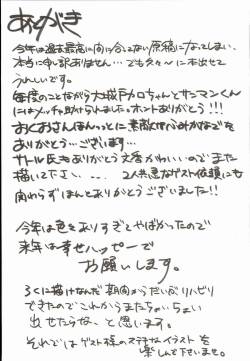 あとがき
今年は過去最高に間に合ってない原稿になってしまい、
本当に申し訳ありません…でも久々〜に本出せて
うれしいです。
毎度のことながら大城戸カロちゃんとサニーマンくん
にはメッチャ助けられました。ホントありがとう!!!
おくおさんほんっとに素敵な
ありがとう…ございます…
サトール氏もありがとう 文香かわいいのでまた
描いて下さい、、、、2人共急なゲスト依頼にも
関わらずほんとありがとうございました!!
今年は色々ありすぎてやばかったので
来年は幸せハッピーで
お願いします。
ろくに描けなんだ期間からだいぶリハビリ
できたのでこれからまたちょいちょい
出せたらな、と思います。
それではゲスト様のステキなイラストを
楽しんで下さいませ。